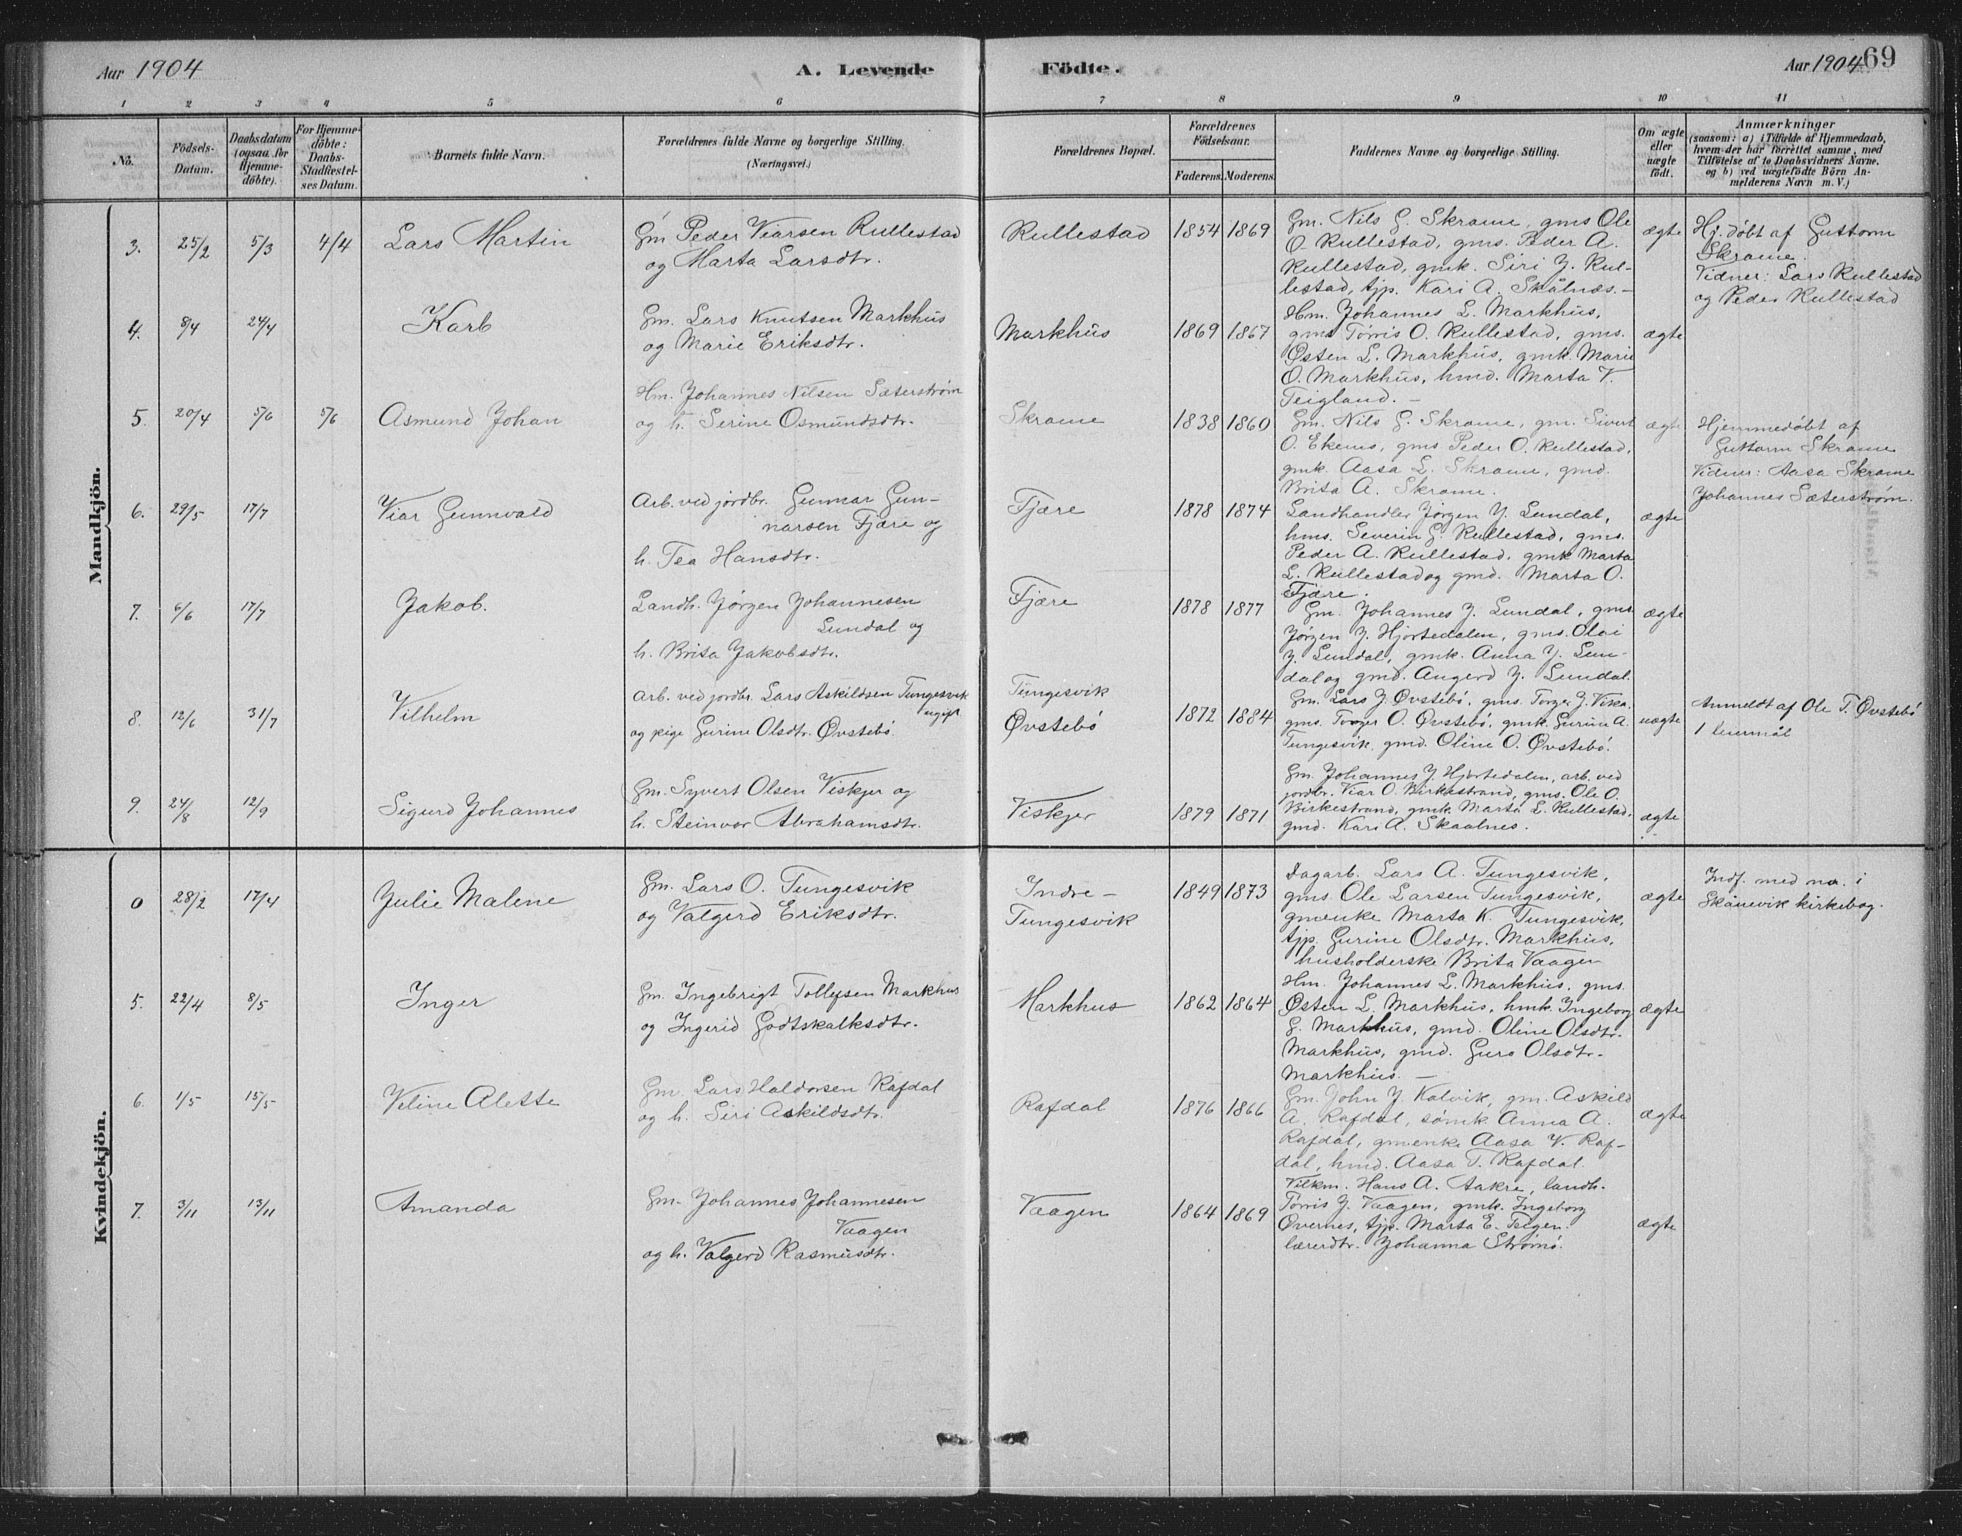 Aar 1904
A. Levende
Födte.
Aar 1904
69
1 2 3 4 5 6 7 8 9 10 11
No.
Födsels-
Datum.
Daabsdatum
(ogsaa for
Hjemme-
döbte).
For Hjemme-
döbte:
Daabs-
Stadfæstel-
ses Datum.
Barnets fulde Navn.
Forældrenes fulde Navne og borgerlige Stilling.
(Næringsvei.)
Forældrenes Bopæl.
Forældrenes
Födselsaar.
Faderens. Moderens.
Faddernes Navne og borgerlige Stilling.
Om ægte
eller
uægte
födt.
Anmærkninger
(saasom: a) i Tilfælde af Hjemmedaab,
hvem der har forrettet samme, med
Tilföielse af to Daabsvidners Navne,
og b) ved uægtefödte Börn An-
melderens Navn m. V.)
Mandkjön.
3. 25/2 5/3 4/4 Lars Martin
Gm Peder Viarsen Rullestad
og Marta Larsdtr.
Rullestad 1854 1869
Gm. Nils G. Skrame, gms Ole
O. Rullestad, gms. Peder A.
Rullestad, gmk. Siri J. Rul-
lestad, tjp. Kari A. Skålnæs.-
ægte
Hj.døbt af Guttorm
Skrame.
Vidner: Lars Rullestad
og Peder Rullestad
4. 8/4 24/4 Karl
Gm. Lars Knutsen Markhus
og Marie Eriksdtr.
Markhus 1869 1867
Hm. Johannes L. Markhus,
gms Tørris O. Rullestad, gms.
Østen L. Markhus, gmk. Marie
O. Markhus, hmd. Marta V.
Teigland. -
ægte
5. 20/4 5/6 5/6 Asmund Johan
Hm. Johannes Nilsen Sæterstrøm
og h. Serine Osmundsdtr.
Skrame 1838 1860
Gm. Nils G. Skrame, gm. Sivert
O. Ekenes, gms Peder O. Rullestad,
gmk. Aasa L. Skrame, gmd.
Brita A. Skrame.
ægte
Hjemmedøbt af
Guttorm Skrame
Vidner: Aasa Skrame
Johannes Sæterstrøm.
6. 29/5 17/7 Viar Gunnvald
Arb. ved jordbr. Gunnar Gun-
narsen Fjære og
h. Tea Hansdtr.
Fjære 1878 1874
Landhandler Jørgen J. Lundal,
hms. Severin G. Rullestad, gms.
Peder A. Rullestad, gmk Marta
L. Rullestad og gmd. Marta O.
Fjære.
ægte
7. 6/6 17/7 Jakob.
Landh. Jørgen Johannesen
Lundal og
h. Brita Jakobsdtr.
Fjære 1878 1877
Gm. Johannes J. Lundal, gms
Jørgen J. Hjortedalen, gms. Olai
J. Lundal, gmk. Anna J. Lun-
dal og gmd. Angerd J. Lundal.
ægte
8. 12/6 31/7 Vilhelm
Arb. ved jordbr. Lars Askildsen Tungesvik
ugift
og pige Gurine Olsdtr. Øvstebö.
Tungesvik
Øvstebö
1872 1884
Gm. Lars J. Øvstebö, gms. Torger J. Vika,
gms. Torger O. Øvstebö, gmk. Gurine A.
Tungesvik, gmd. Oline O. Øvstebö.
uægte
Anmeldt af Ole T. Øvstebö
1 leiermål
9. 24/8 12/9 Sigurd Johannes
Gm. Syvert Olsen Viskjer og
h. Steinvor Abrahamsdtr.
Viskjer 1879 1871
Gm. Johannes J. Hjortedalen, arb. ved
jordbr. Viar O. Birkestrand, gms. Ole O.
Birkestrand, gmk. Marta L. Rullestad,
gmd. Kari A. Skaalnes.
ægte
Kvindekjön.
0 28/2 17/4 Julie Malene
Gm. Lars O. Tungesvik
og Valgerd Eriksdtr.
Indre -
Tungesvik
1849 1873
Dagarb. Lars A. Tungesvik,
gms. Ole Larsen Tungesvik,
gmenke Marta K. Tungesvik,
tjp. Gurine Olsdtr. Markhus,
husholderske Brita Vaagen
ægte
Indf. med no. i
Skånevik kirkebog.
5. 22/4 8/5 Inger
Gm. Ingebrigt Tollefsen Markhus
og Ingerid Godtskalksdtr.
Markhus 1862 1864
Hm. Johannes L. Markhus, gms.
Østen L. Markhus, hmk. Ingeborg
G. Markhus, gmd. Oline Olsdtr.
Markhus, gmd. Guro Olsdtr.
Markhus. -
ægte
6. 1/5 15/5 Veline Alette
Gm. Lars Haldorsen Rafdal
og h. Siri Askildsdtr.
Rafdal 1876 1866
Gm. John J. Kalvik, gm. Askild
A. Rafdal, sømk. Anna A.
Rafdal, gmenke Aasa V. Raf-
dal, hmd. Aasa T. Rafdal.
ægte
7. 3/11 13/11 Amanda
Gm. Johannes Johannesen
Vaagen
og h. Valgerd Rasmusdtr.
Vaagen 1864 1869
Vilkm. Hans A. Aakre, landh.
Tørris J. Vaagen, gmk. Ingeborg
Overnes, tjp. Marta E. Teigen.
lærerdtr. Johanna Strømö.
ægte